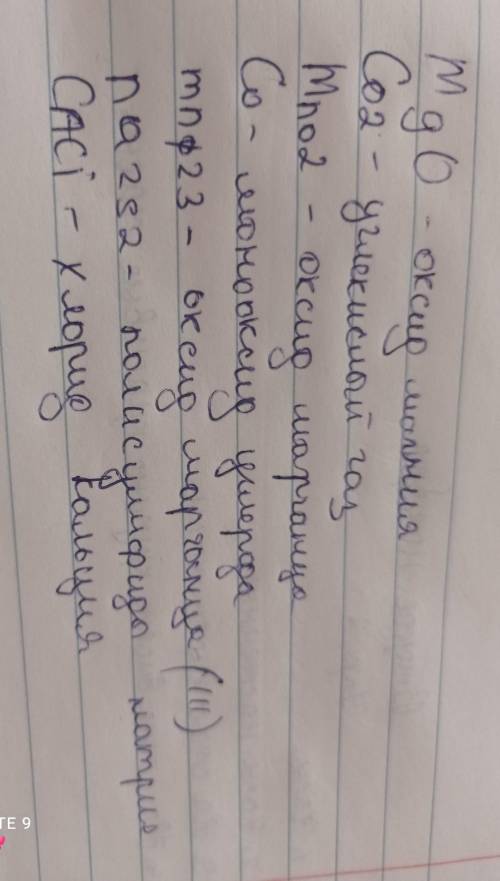 MgO - оксид магния
CO2 - углекислый газ
MnO2 - оксид марганца
CO - монооксид углерода
mnф23 - оксид марганца (III)
na2s2 - полисульфиды натрия
CACi - хлорид кальция
TE 9